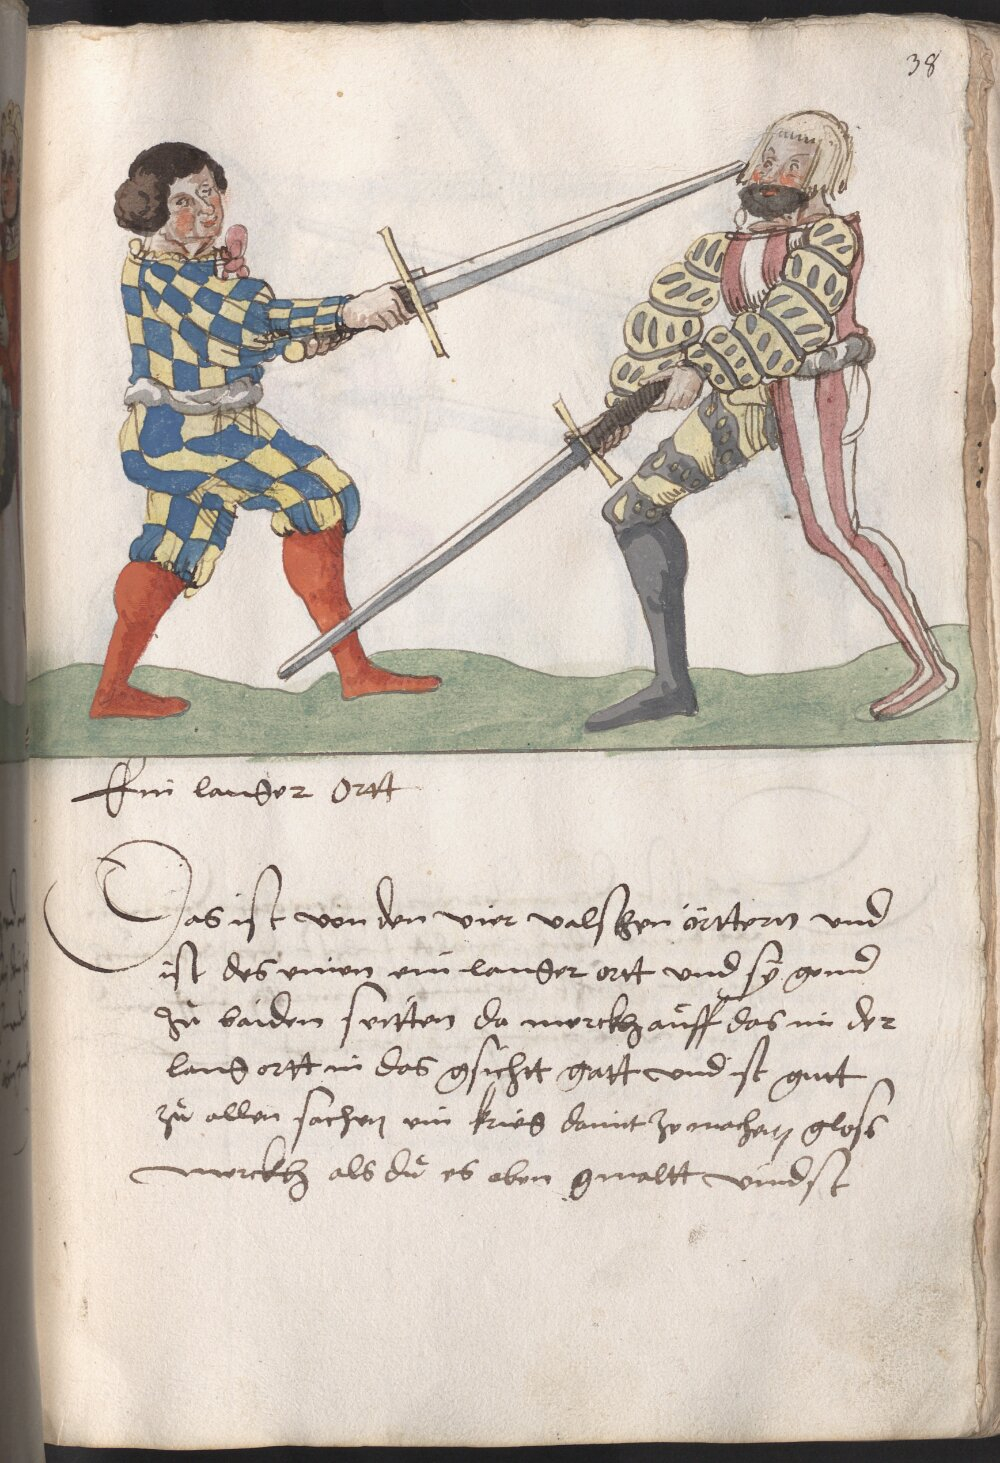 38
Ein langer Ortt
Das ist von den vier valschen örttern und
ist des einen ein langer ortt und sÿ gend
zů baiden seitten da merckh aůff das im der
lang ortt in das gsicht gatt und ist gutt
zů allen sachen ein krieg damit ze machen gloss
merckh als dů es oben gmaltt vindst